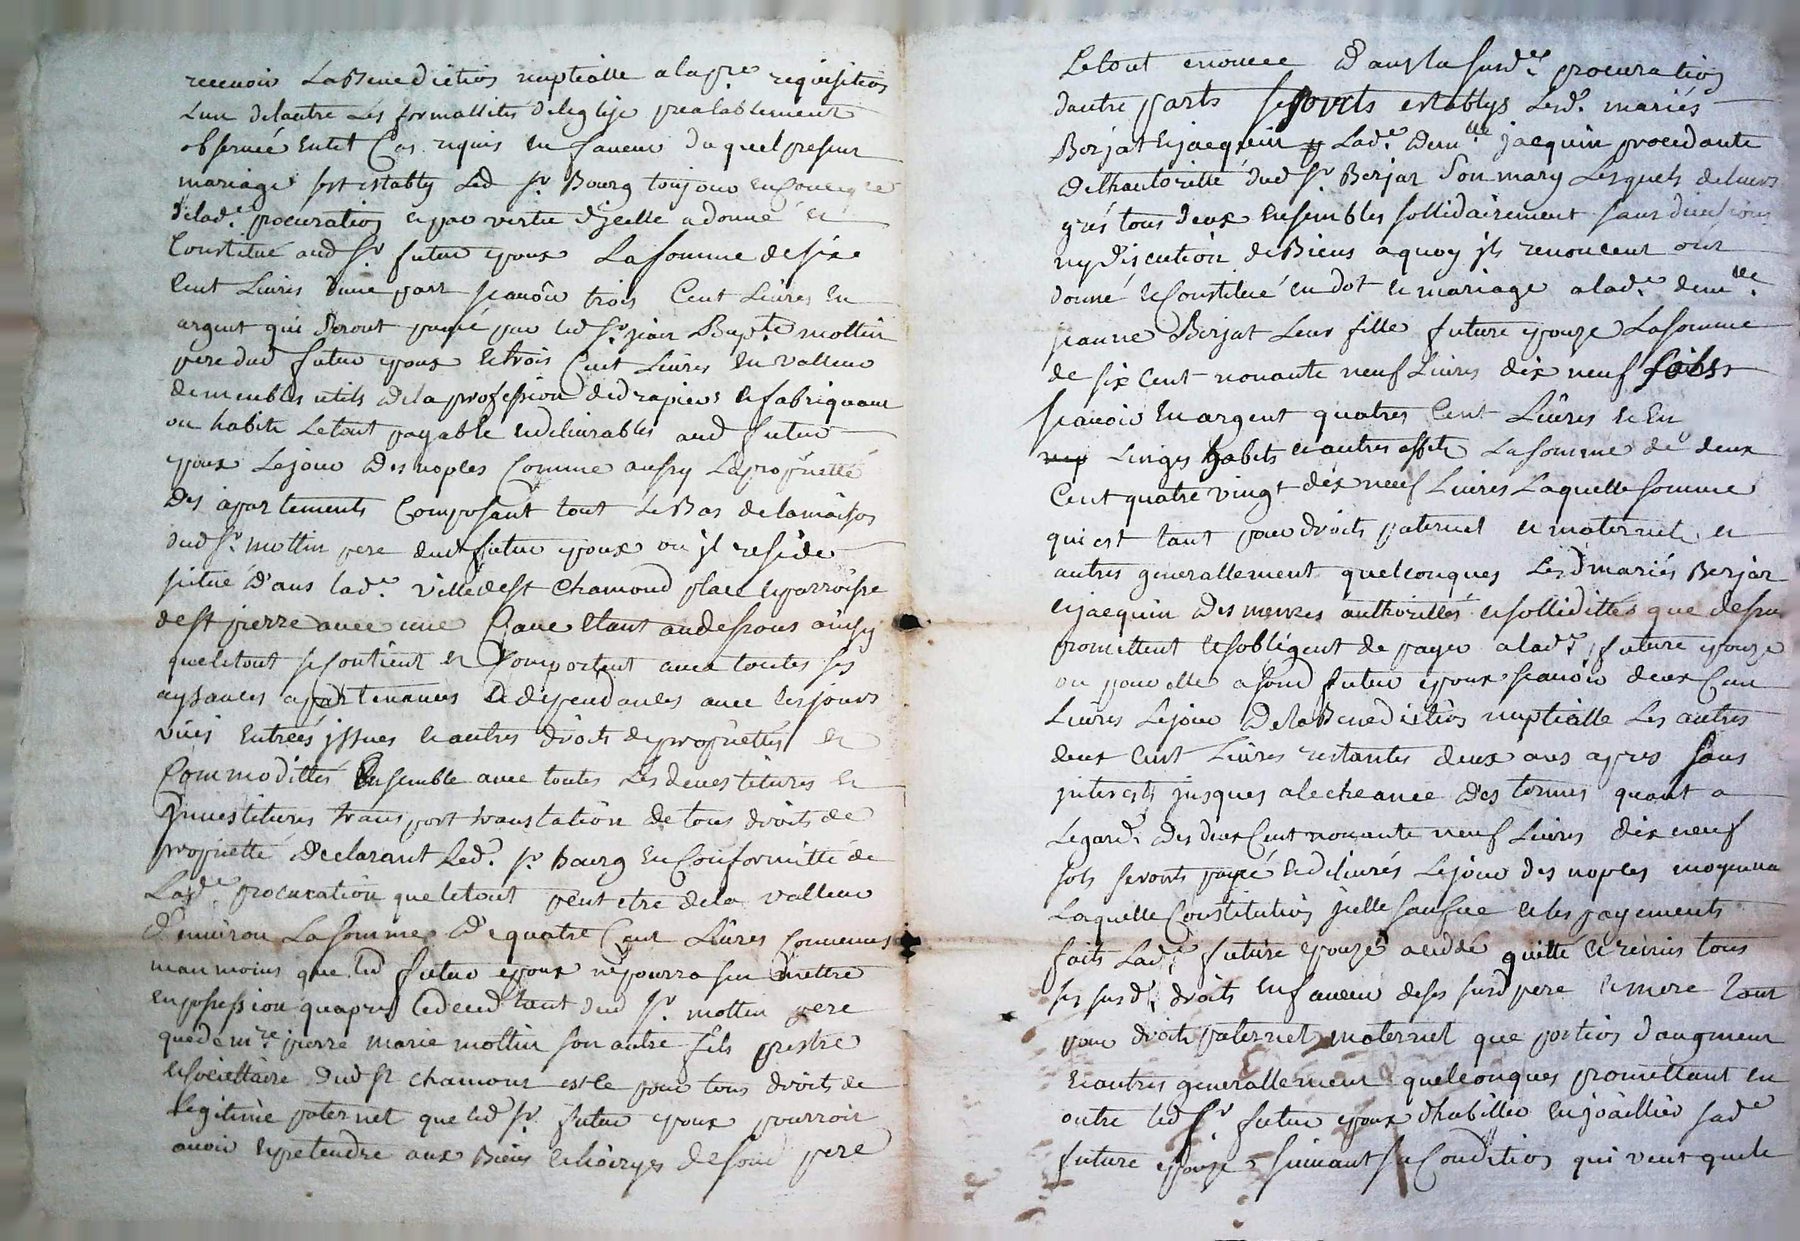 recevoir La Benediction nuptialle a la p.re requisition
L'un de lautre Les formallités de leglise prealablement
observée En tel Cas requis En faveur du quel present
mariage s'est estably Led. Sr. Bourg toujour en
de lad.e procuration et par vertu d'jcelle a donné et
Constitué aud. Sr. futur epoux La somme de six
Cent Livres d'une part scavoir trois Cent Livres en
argent qui seront payé par led. Sr. jean Bap.te mottin
pere dud. futur epoux et trois Cent Livres en valleur
de meubles utils de la profession de drapiers et fabriquant
ou habits Le tout payable et delivrables aud. futur
epoux Le jour des nopces Comme aussy La proprietté
des apartements Composant tout Le Bas de la maison
dud. Sr. mottin pere dud. futur epoux ou jl reside
situé d'ans lad.e ville de St Chamond place et parroisse
de St pierre avec une Cave Etant au dessous ainsy
que le tout se Contient et Comportent avec toutes ses
aysances apartenances et dependances avec les jours
vües Entrées jssues et autres droits de propriettés et
Commodittés Ensemble avec toutes Les devestitures et
jnvestitures transport translation de tous droits de
proprietté declarant Led. Sr. Bourg en Conformitté de
Lad.e procuration que le tout peut etre de la valleur
d'environ La somme de quatre Cent Livres Convenus
neanmoins que led. futur epoux ne pourra s'en mettre
en possession qu'apres le deced tant dud. Sr. mottin pere
que de m.re pierre marie mottin son autre fils prestre
et societtaire dud. St chamont et ce pour tous droits de
Legitime paternel que led. Sr. futur epoux pourroit
avoir et pretendre aux Biens et hoiryes de son d. pere
Le tout enoncée d'ans la susd.e procuration
d'autre parts se sonts establys Lesd. mariés
Berjat et jacquin Lad.e dem.lle jacquin procedante
de l'hautoritté dud. Sr. Berjat son mary Lesquels de leurs
grés tous deux ensembles sollidairement sans divisions
ny discution de Biens a quoy jls renoncent ont
donné et Constitué en dot et mariage a lad.e dem.lle
jeanne Berjat Leur fille future epouze La somme
de six Cent nonante neuf Livres dix neuf sols
scavoir en argent quatres Cent Livres et En
Linges habits et autres effets La somme de deux
Cent quatre vingt dix neuf Livres Laquelle somme
qui est tant pour droits paternel et maternels et
autres generallement quelconques Lesd. mariés Berjat
et jacquin des memes authorittés et sollidittés que dessus
promettent et s'obligent de payer a lad.e future epouze
ou pour elle a son d. futur epoux scavoir deux Cent
Livres Le jour de la Benediction nuptialle Les autres
deux Cent Livres restantes deux ans apres sans
jnterests jusques a lecheance des termes quant a
Legard des deux Cent nonante neuf Livres dix neuf
sols seronts payé et delivrés Le jour des nopces moyennant
Laquelle Constitution jcelle sauf ue et les payements
faits Lad.e future epouze a ceddé quitté et remis tous
ses susd. droits En faveur de ses susd. pere et mere tant
pour droits paternel maternel que portion d'augment
et autres generallement quelconques promettant en
outre led. Sr. futur epoux d'habiller et joaillier sad.e
future epouze suivant sa Condition qui veut que le